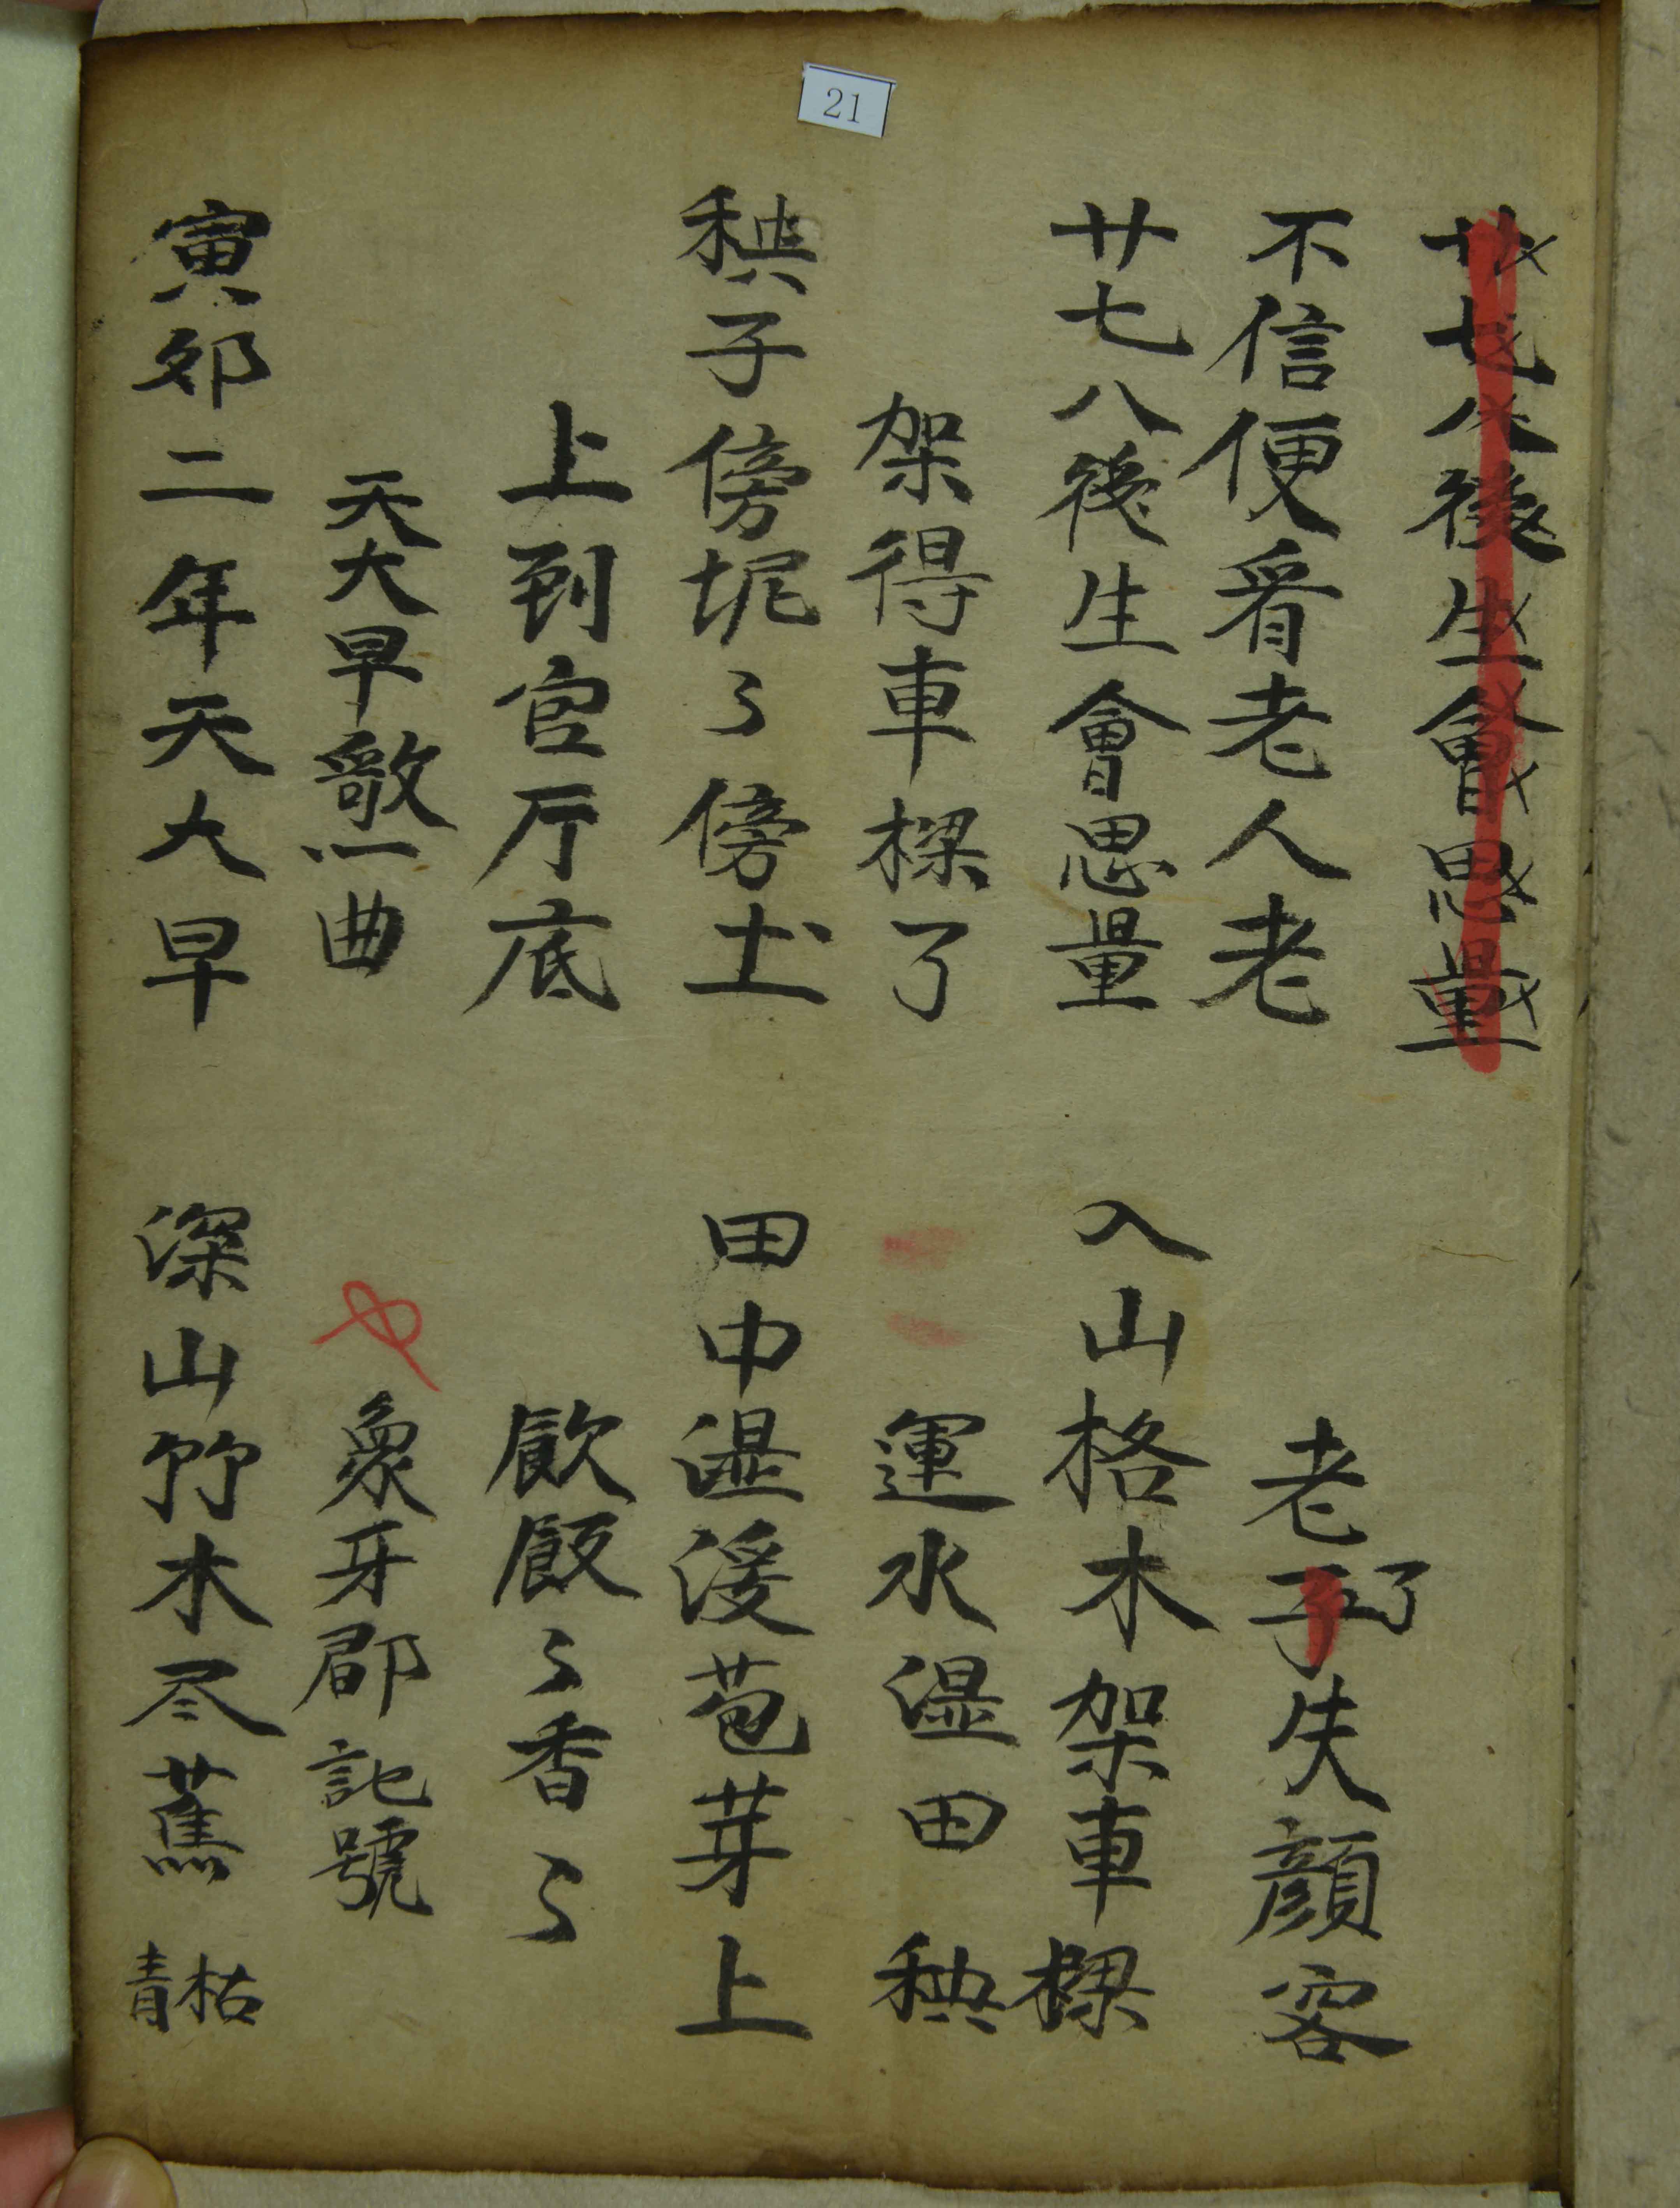 21
廿七八後生會思量
不信便看老人老
老了失顔容
廿七八後生會思量
入山格木架車樑
架得車樑了
運水湿田秧
秧子傍坭〻傍土
田中湿浸苞芽上
上到官厅底
飲飯〻香〻
天大旱歌一曲
象牙郡 記號
寅卯二年天大旱
深山竹木尽蕉枯
青